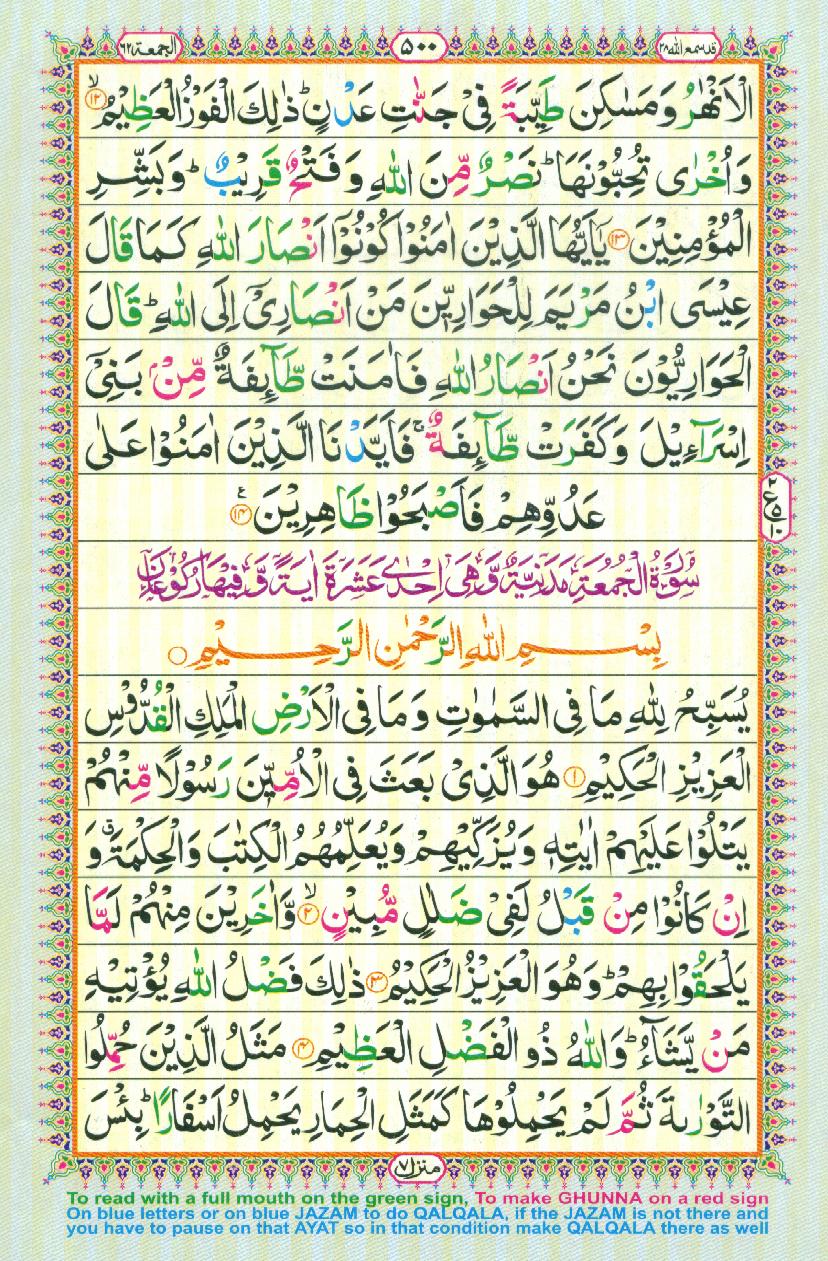 قد سمع الله ٢٨
٥٠٠
الجمعة ٦٢
الْاَنْهٰرُ وَمَسٰكِنَ طَيِّبَةً فِيْ جَنّٰتِ عَدْنٍ ؕ ذٰلِكَ الْفَوْزُ الْعَظِيْمُ ۙ﴿۱۲﴾
وَاُخْرٰى تُحِبُّوْنَهَا ؕ نَصْرٌ مِّنَ اللّٰهِ وَفَتْحٌ قَرِيْبٌ ؕ وَبَشِّرِ
الْمُؤْمِنِيْنَ ﴿۱۳﴾ يٰۤاَيُّهَا الَّذِيْنَ اٰمَنُوْا كُوْنُوْۤا اَنْصَارَ اللّٰهِ كَمَا قَالَ
عِيْسَى ابْنُ مَرْيَمَ لِلْحَوَارِيّٖنَ مَنْ اَنْصَارِيْۤ اِلَى اللّٰهِ ؕ قَالَ
الْحَوَارِيُّوْنَ نَحْنُ اَنْصَارُ اللّٰهِ فَاٰمَنَتْ طَّآئِفَةٌ مِّنْۢ بَنِيْۤ
اِسْرَآءِيْلَ وَكَفَرَتْ طَّآئِفَةٌ ۚ فَاَيَّدْنَا الَّذِيْنَ اٰمَنُوْا عَلٰى
عَدُوِّهِمْ فَاَصْبَحُوْا ظَاهِرِيْنَ ﴿۱۴﴾ ع
٢ ع ١٠
سُوْرَةُ الْجُمُعَةِ مَدَنِيَّةٌ وَّهِيَ اِحْدٰى عَشْرَةَ اٰيَةً وَّفِيْهَا رُكُوْعَانِ
بِسْمِ اللّٰهِ الرَّحْمٰنِ الرَّحِيْمِ ○
يُسَبِّحُ لِلّٰهِ مَا فِى السَّمٰوٰتِ وَمَا فِى الْاَرْضِ الْمَلِكِ الْقُدُّوْسِ
الْعَزِيْزِ الْحَكِيْمِ ﴿۱﴾ هُوَ الَّذِيْ بَعَثَ فِى الْاُمِّيّٖنَ رَسُوْلًا مِّنْهُمْ
يَتْلُوْا عَلَيْهِمْ اٰيٰتِهٖ وَيُزَكِّيْهِمْ وَيُعَلِّمُهُمُ الْكِتٰبَ وَالْحِكْمَةَ ۗ وَ
اِنْ كَانُوْا مِنْ قَبْلُ لَفِيْ ضَلٰلٍ مُّبِيْنٍ ۙ﴿۲﴾ وَّاٰخَرِيْنَ مِنْهُمْ لَمَّا
يَلْحَقُوْا بِهِمْ ؕ وَهُوَ الْعَزِيْزُ الْحَكِيْمُ ﴿۳﴾ ذٰلِكَ فَضْلُ اللّٰهِ يُؤْتِيْهِ
مَنْ يَّشَآءُ ؕ وَاللّٰهُ ذُو الْفَضْلِ الْعَظِيْمِ ﴿۴﴾ مَثَلُ الَّذِيْنَ حُمِّلُوا
التَّوْرٰىةَ ثُمَّ لَمْ يَحْمِلُوْهَا كَمَثَلِ الْحِمَارِ يَحْمِلُ اَسْفَارًا ؕ بِئْسَ
منزل ٧
To read with a full mouth on the green sign, To make GHUNNA on a red sign
On blue letters or on blue JAZAM to do QALQALA, if the JAZAM is not there and
you have to pause on that AYAT so in that condition make QALQALA there as well